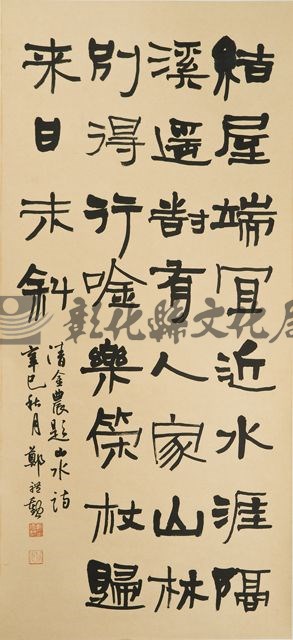 結屋端宜近水涯隔
溪還對有人家山林
別得行唫樂策杖歸
来日未斜
清金農題山水詩
辛巳秋月 鄭禮勲
彰化縣文化局